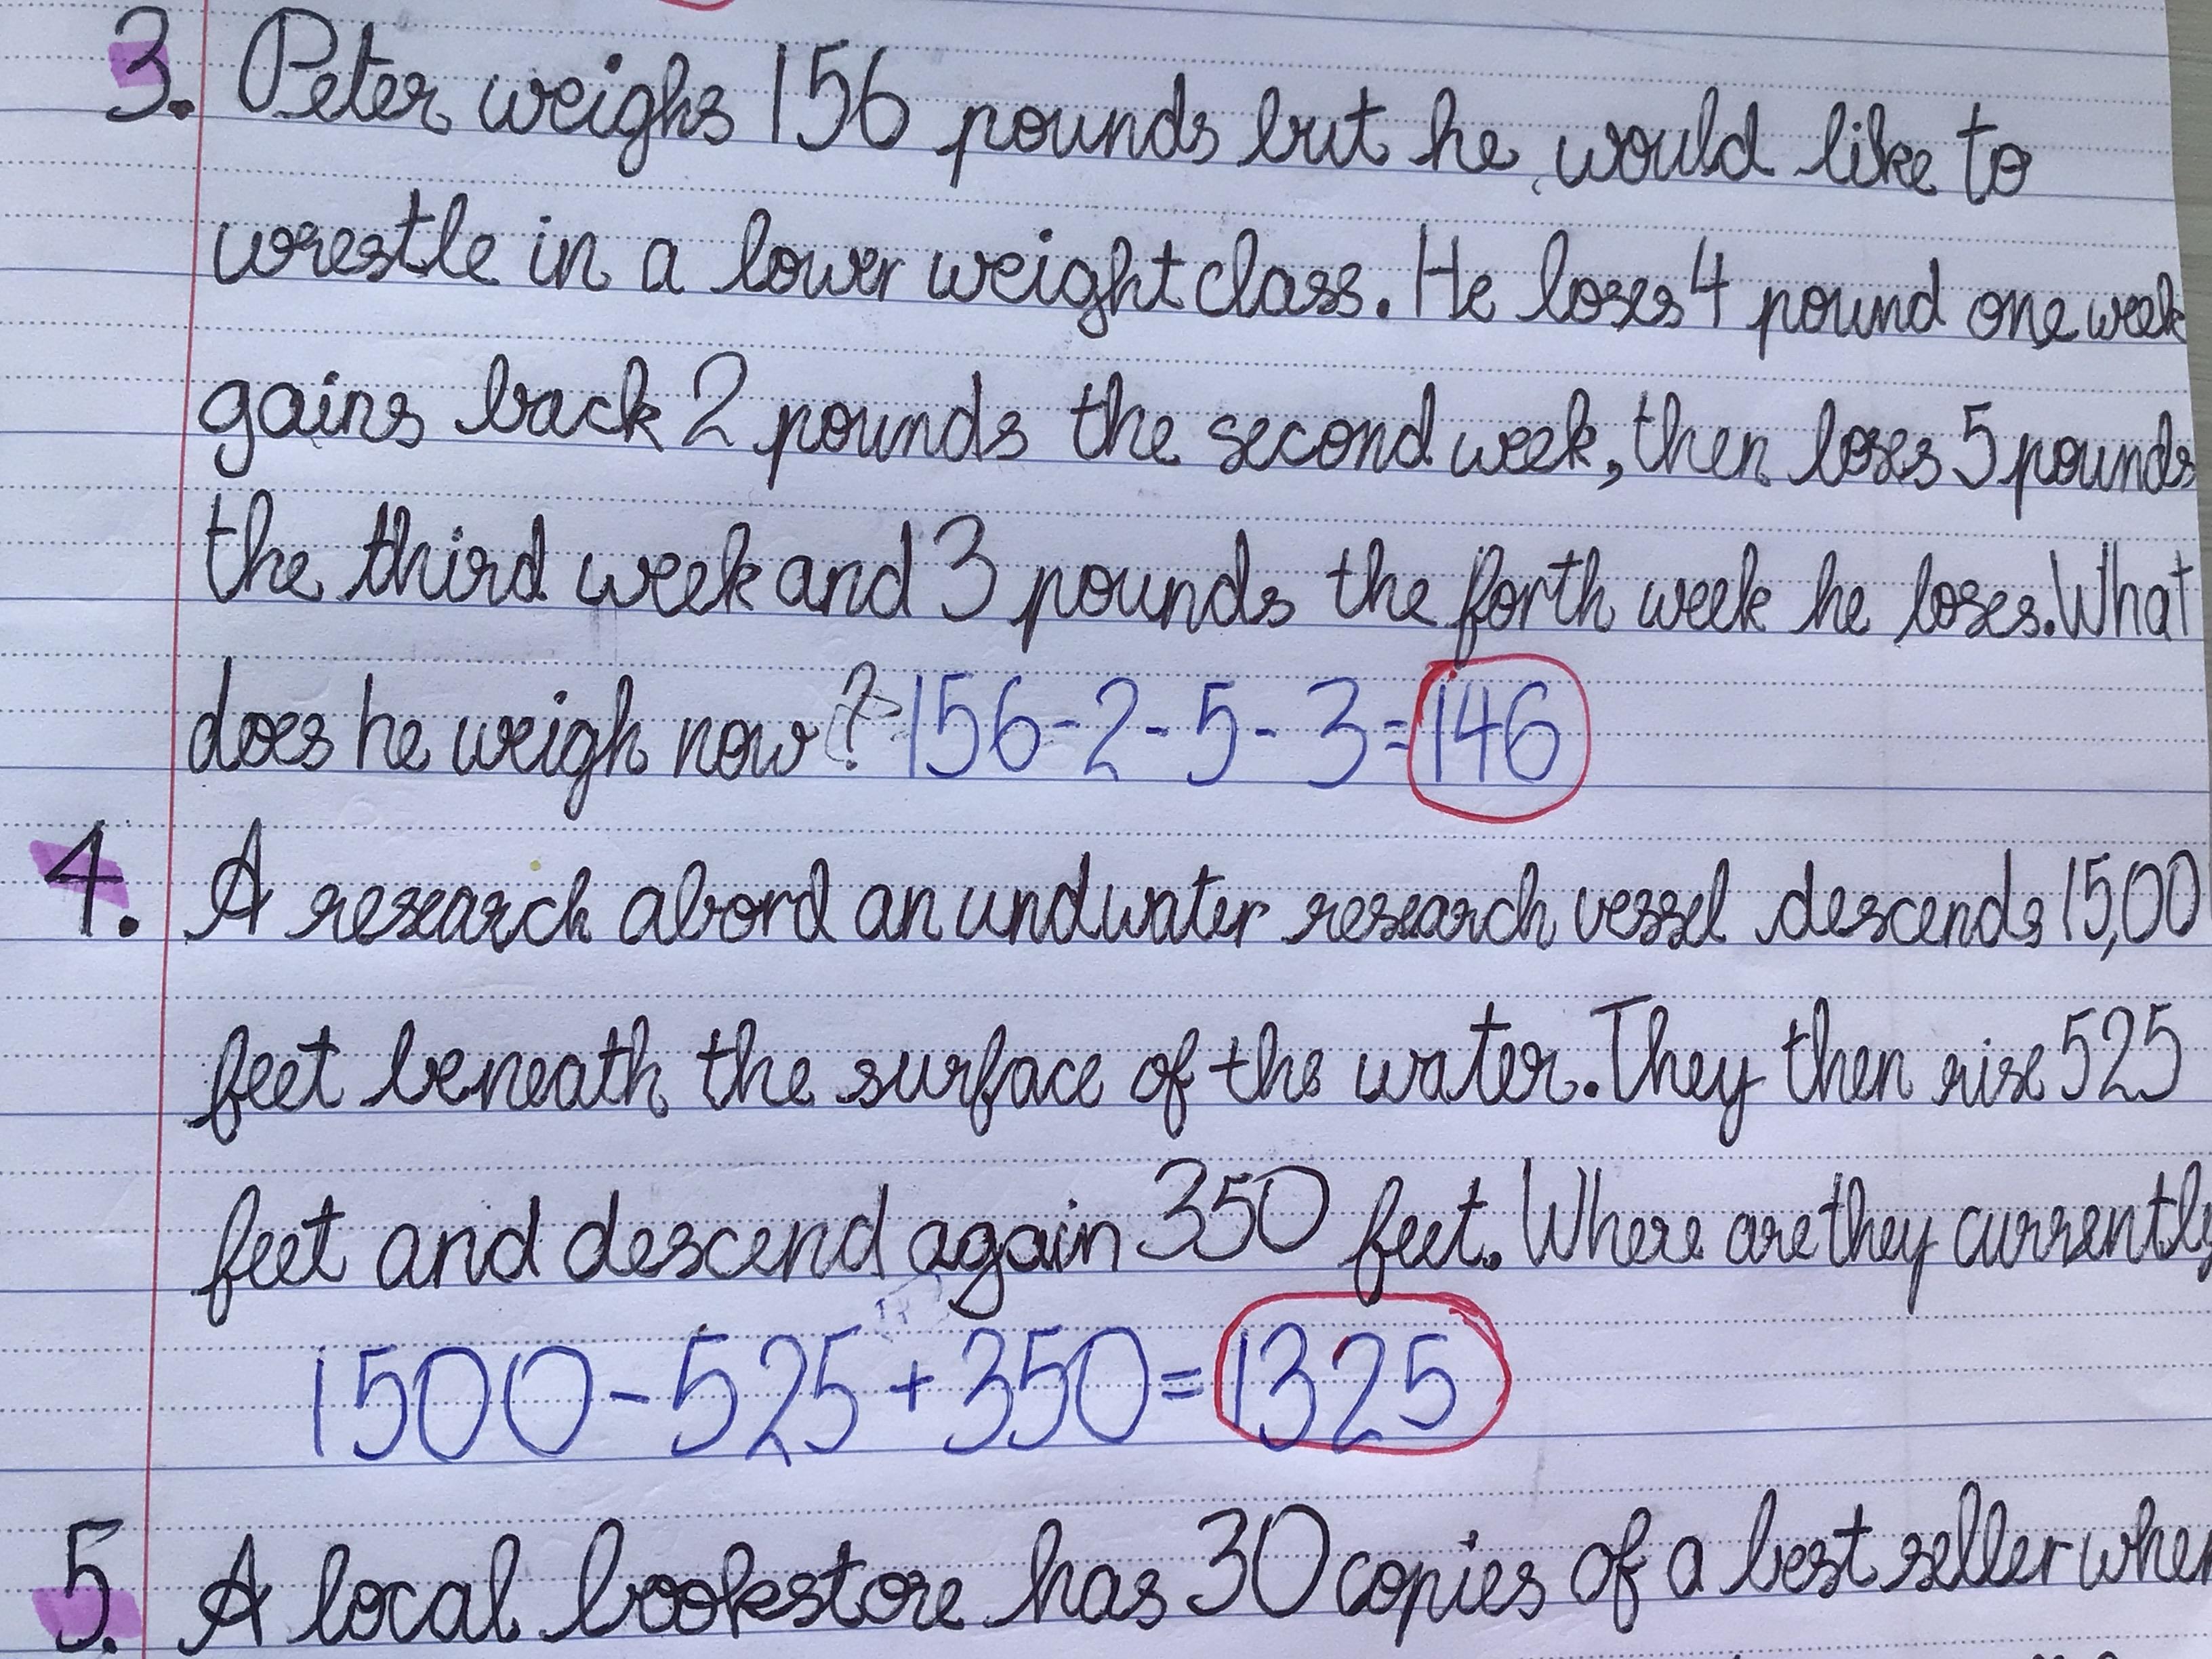 3. Peter weighs 156 pounds but he would like to
wrestle in a lower weight class. He loses 4 pound one week
gains back 2 pounds the second week, then loses 5 pounds
the third week and 3 pounds the forth week he loses. What
does he weigh now? 156-2-5-3=146
4. A research abord an undwater research vessel descends 15,00
feet beneath the surface of the water. They then rise 525
feet and descend again 350 feet. Where are they currently
1500-525+350=1325
5. A local bookstore has 30 copies of a best seller when